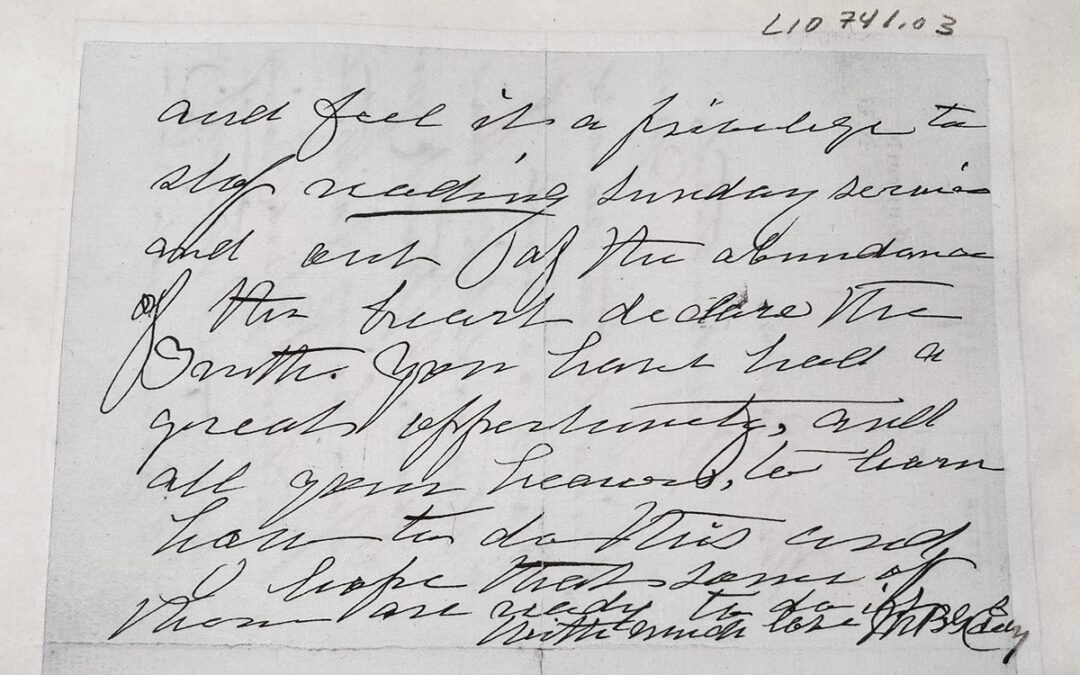 L10741.03
and feel it a privilege to
stop reading Sunday service
and out of the abundance
of the heart declare the
Truth. You have had a
great opportunity, and
all your hearers, to learn
how to do this and
I hope that some of
them are ready to do it.
With much love M B G Eddy